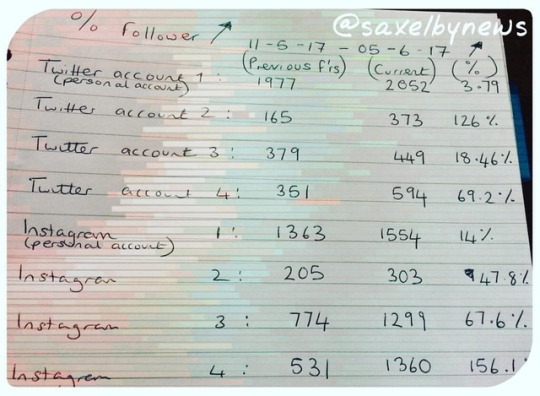 @saxelbynews
% Follower ↗
11-5-17 - 05-6-17 ↗
(Previous f'rs) (Current) (%)
Twitter account 1: 1977 2052 3.79
(personal account)
Twitter account 2: 165 373 126%
Twitter account 3: 379 449 18.46%
Twitter account 4: 351 594 69.2%
Instagram 1: 1363 1554 14%
(personal account)
Instagram 2: 205 303 47.8%
Instagram 3: 774 1299 67.6%
Instagram 4: 531 1360 156.1